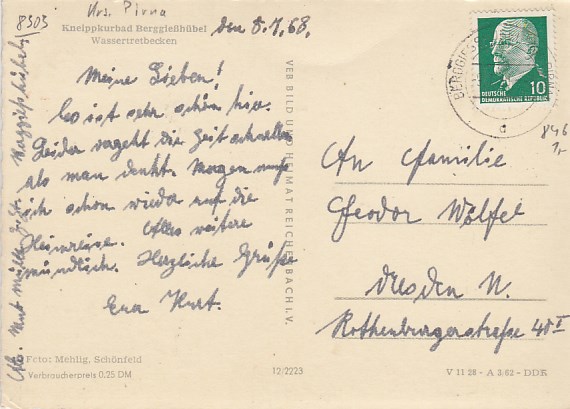 8303
Krs. Pirna
Kneippkurbad Berggießhübel
Wassertretbecken
den 8.7.68.
Meine Lieben!
Es ist sehr schön hier.
Leider vergeht die Zeit schneller
als man denkt. Morgen muß
ich schon wieder auf die
Heimreise. Alles weitere
mündlich. Herzliche Grüße
Euer Kurt.
Abs. Kurt
Foto: Mehlig, Schönfeld
Verbraucherpreis 0,25 DM
VEB BILD UND HEIMAT REICHENBACH I. V.
12/2223
BERGGIESSHÜBEL
d
10
DEUTSCHE
DEMOKRATISCHE REPUBLIK
846
An Familie
Theodor Wölfel
Dresden N.
Rothenburgerstraße 40 I
V 11 28 - A 3/62 - DDR